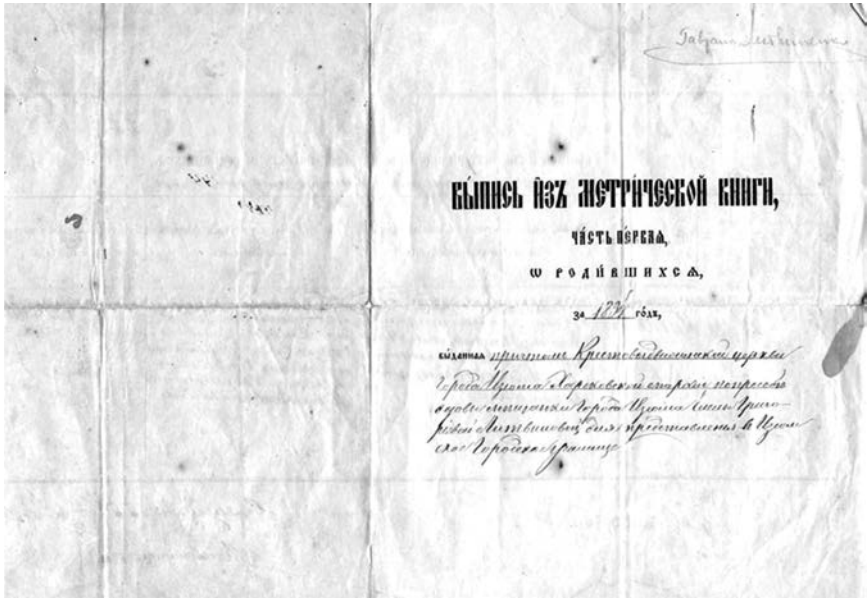 ВЫ́ПИСЬ И҆ЗЪ МЕТРИ́ЧЕСКОЙ КНИГИ,
ЧА́СТЬ ПЕ́РВАѦ,
Ѡ РОДИ́ВШИХСѦ,
за го́дъ,
вы́даннаѧ причтомъ Крестовоздвиженской церкви
Города Изюма Харьковской епархіи по просьбѣ
вдовы мѣщанки Города Изюма Елены Григо-
рьевой Литвиновой для представленія в Изюм
ское Городское